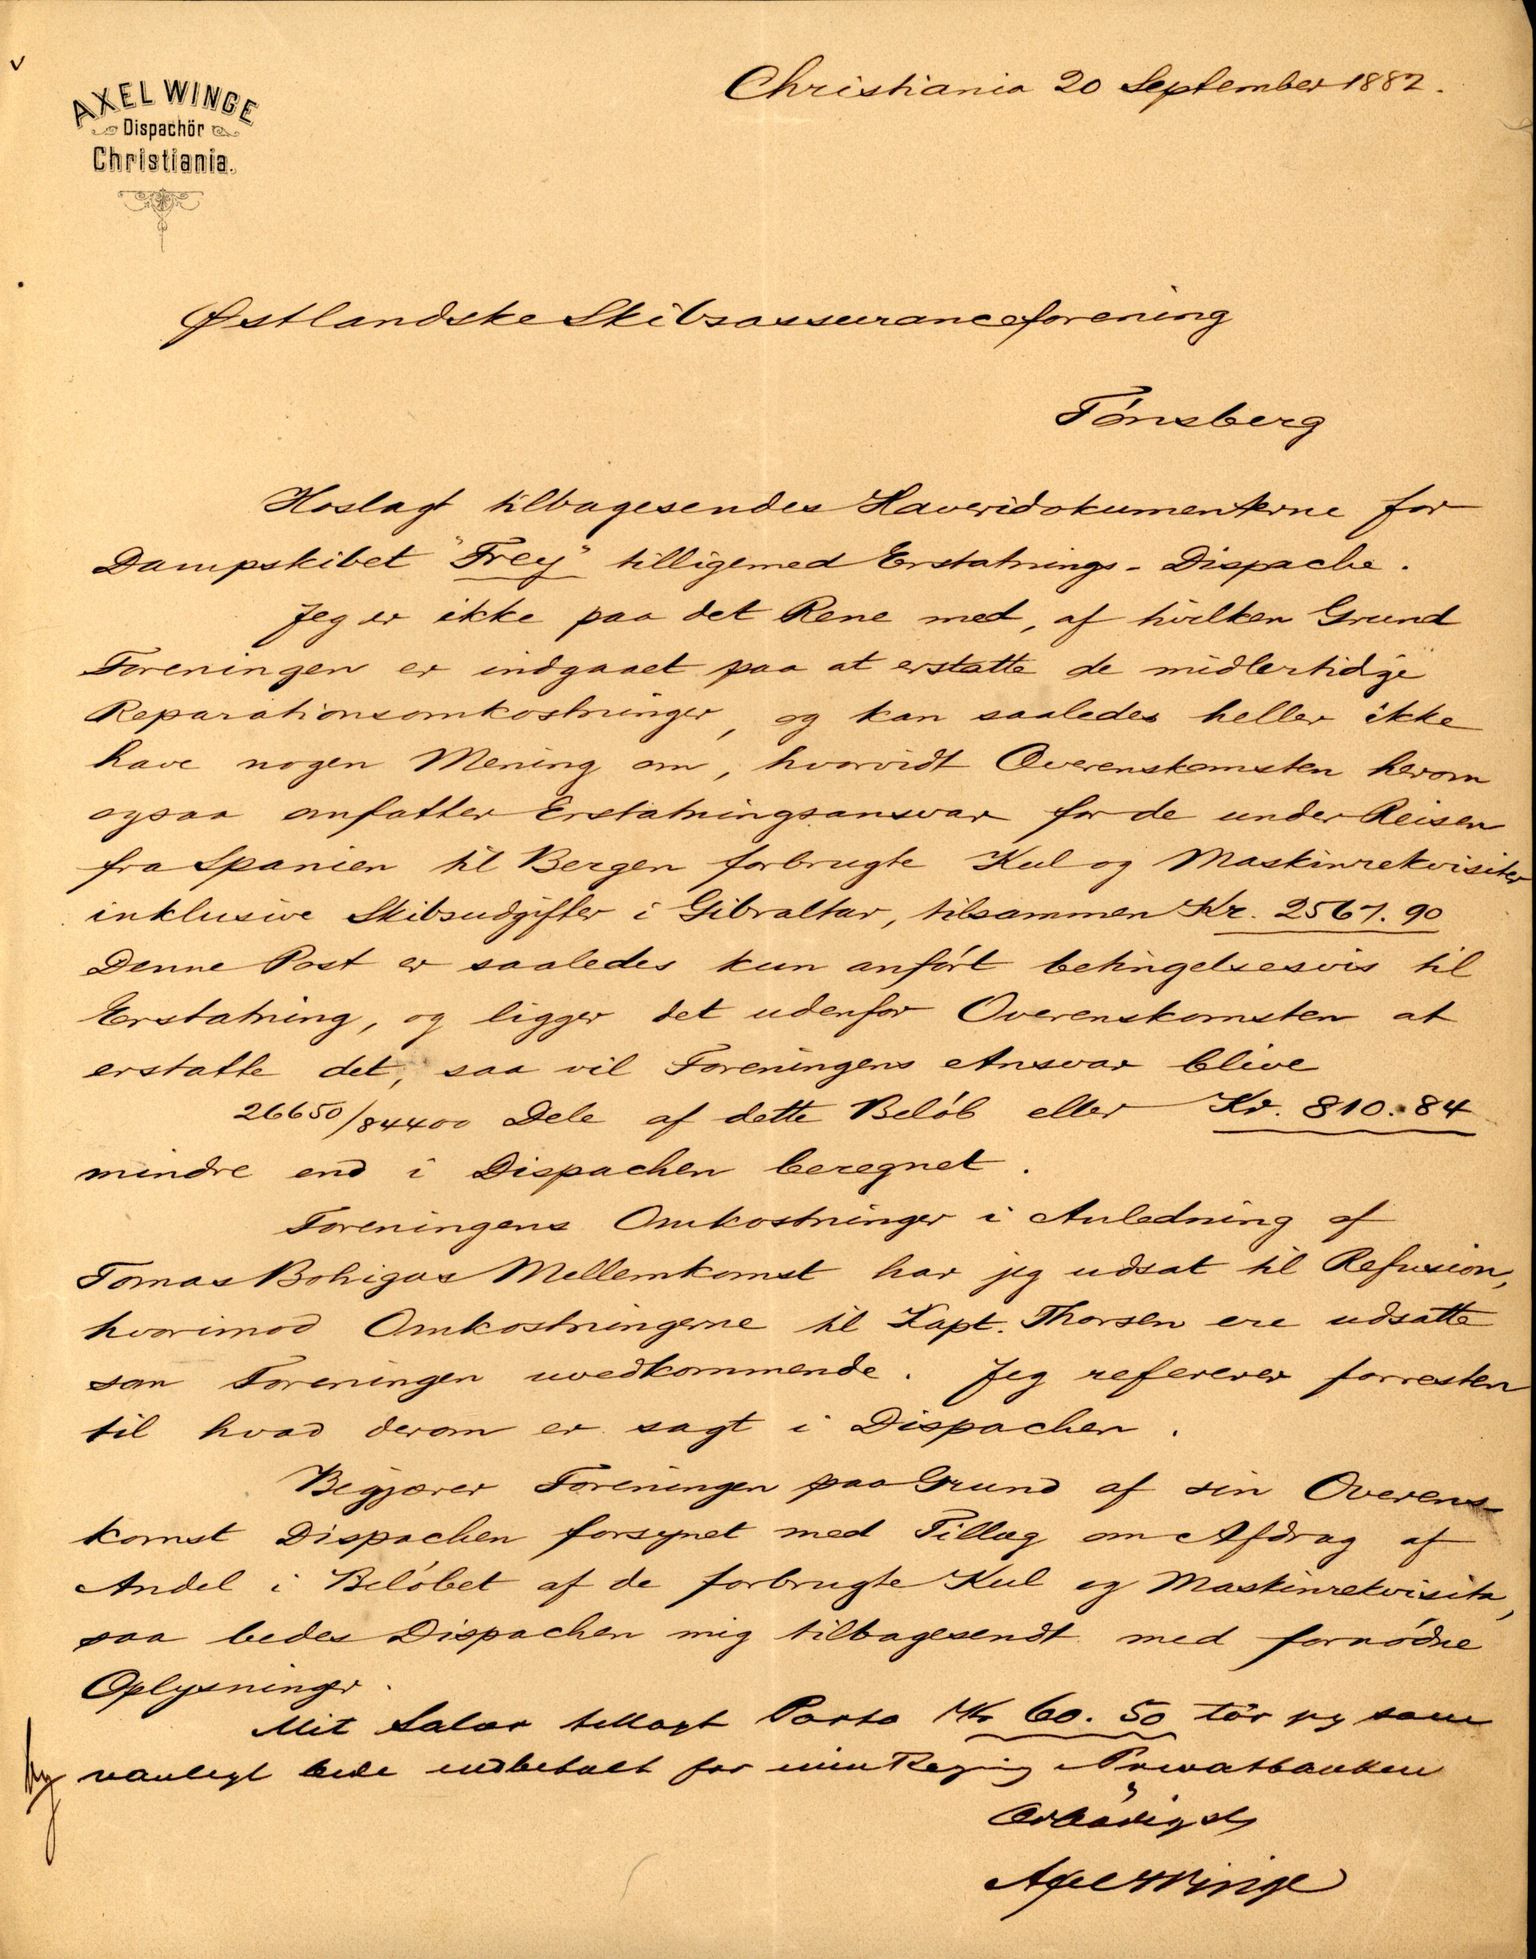 AXEL WINGE
Dispachör
Christiania.
Christiania 20 September 1882.
Østlandske Skibsassuranceforening
Tönsberg
Hoslagt tilbagesendes Haveridokumenterne for
Dampskibet "Frey" tilligemed Erstatnings-Dispache.
Jeg er ikke paa det Rene med, af hvilken Grund
Foreningen er indgaaet paa at erstatte de midlertidige
Reparationsomkostninger, og kan saaledes heller ikke
have nogen Mening om, hvorvidt Overenskomsten herom
ogsaa omfatter Erstatningsansvar for de under Reisen
fra Spanien til Bergen forbrugte Kul og Maskinrekvisiter
inklusive Skibsudgifter i Gibraltar, tilsammen Kr. 2567.90
Denne Post er saaledes kun anført betingelsesvis til
Erstatning, og ligger det udenfor Overenskomsten at
erstatte det, saa vil Foreningens Ansvar blive
26650/84400 Dele af dette Beløb eller Kr. 810.84
mindre end i Dispachen beregnet.
Foreningens Omkostninger i Anledning af
Tomas Bohigas Mellemkomst har jeg udsat til Refusion,
hvorimod Omkostningerne til Kapt. Thorsen ere udsatte
som Foreningen uvedkommende. Jeg refererer forresten
til hvad derom er sagt i Dispachen.
Begjærer Foreningen paa Grund af sin Overens-
komst Dispachen forsynet med Tillæg om Afdrag af
Andel i Beløbet af de forbrugte Kul og Maskinrekvisita,
saa bedes Dispachen mig tilbagesendt med fornødne
Oplysninger.
Mit Salær tillagt Porto Kr 60.50 tør jeg som
vanligt bede indbetalt for min Regning i Privatbanken
Ærbødigst
Axel Winge